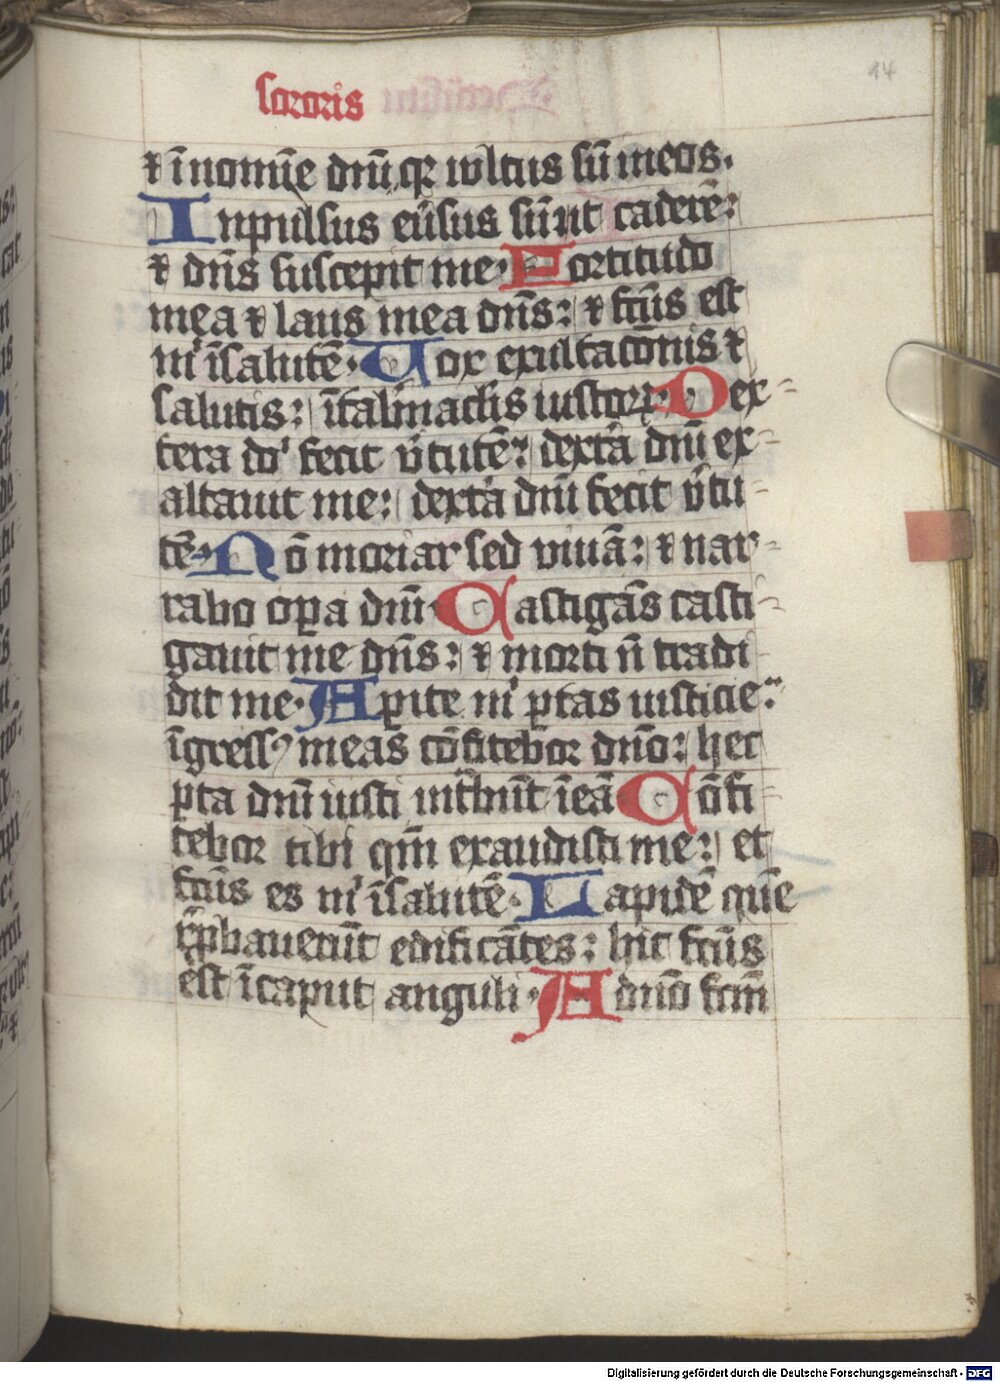 sororis
14
⁊ ī nomīe dnī qꝛ vltus sū in eos.
Inpulsus eūsus sūt ut caderē:
⁊ dn̄s suscepit me. Fortitudo
mea ⁊ laus mea dn̄s: ⁊ fc̄us est
mͥ ī salutē. Vox exultac̄onis ⁊
salutis: ī tab̄naclis iustoꝝ. Dex-
tera doͥ fecit v̄tutē: dext̄a dnī ex-
altauit me: dext̄a dnī fecit v̄tu-
tē. Nō moriar sed viuā: ⁊ nar-
rabo oꝑa dnī. Castigās casti-
gauit me dn̄s: ⁊ morti n̄ tradi
dit me. Aꝑite mͥ ꝑtas iusticie:
īgressꝯ in eas cōfitebor dn̄o: hec
ꝑta dnī iusti int̄būt ī eā Cōfi-
tebor tibi qm̄ exaudisti me: et
fc̄us es mͥ ī salutē. Lapidē quē
rep̄bauerūt edificātes: hic fc̄us
est ī caput anguli. A dn̄o fcm̄
Digitalisierung gefördert durch die Deutsche Forschungsgemeinschaft - DFG